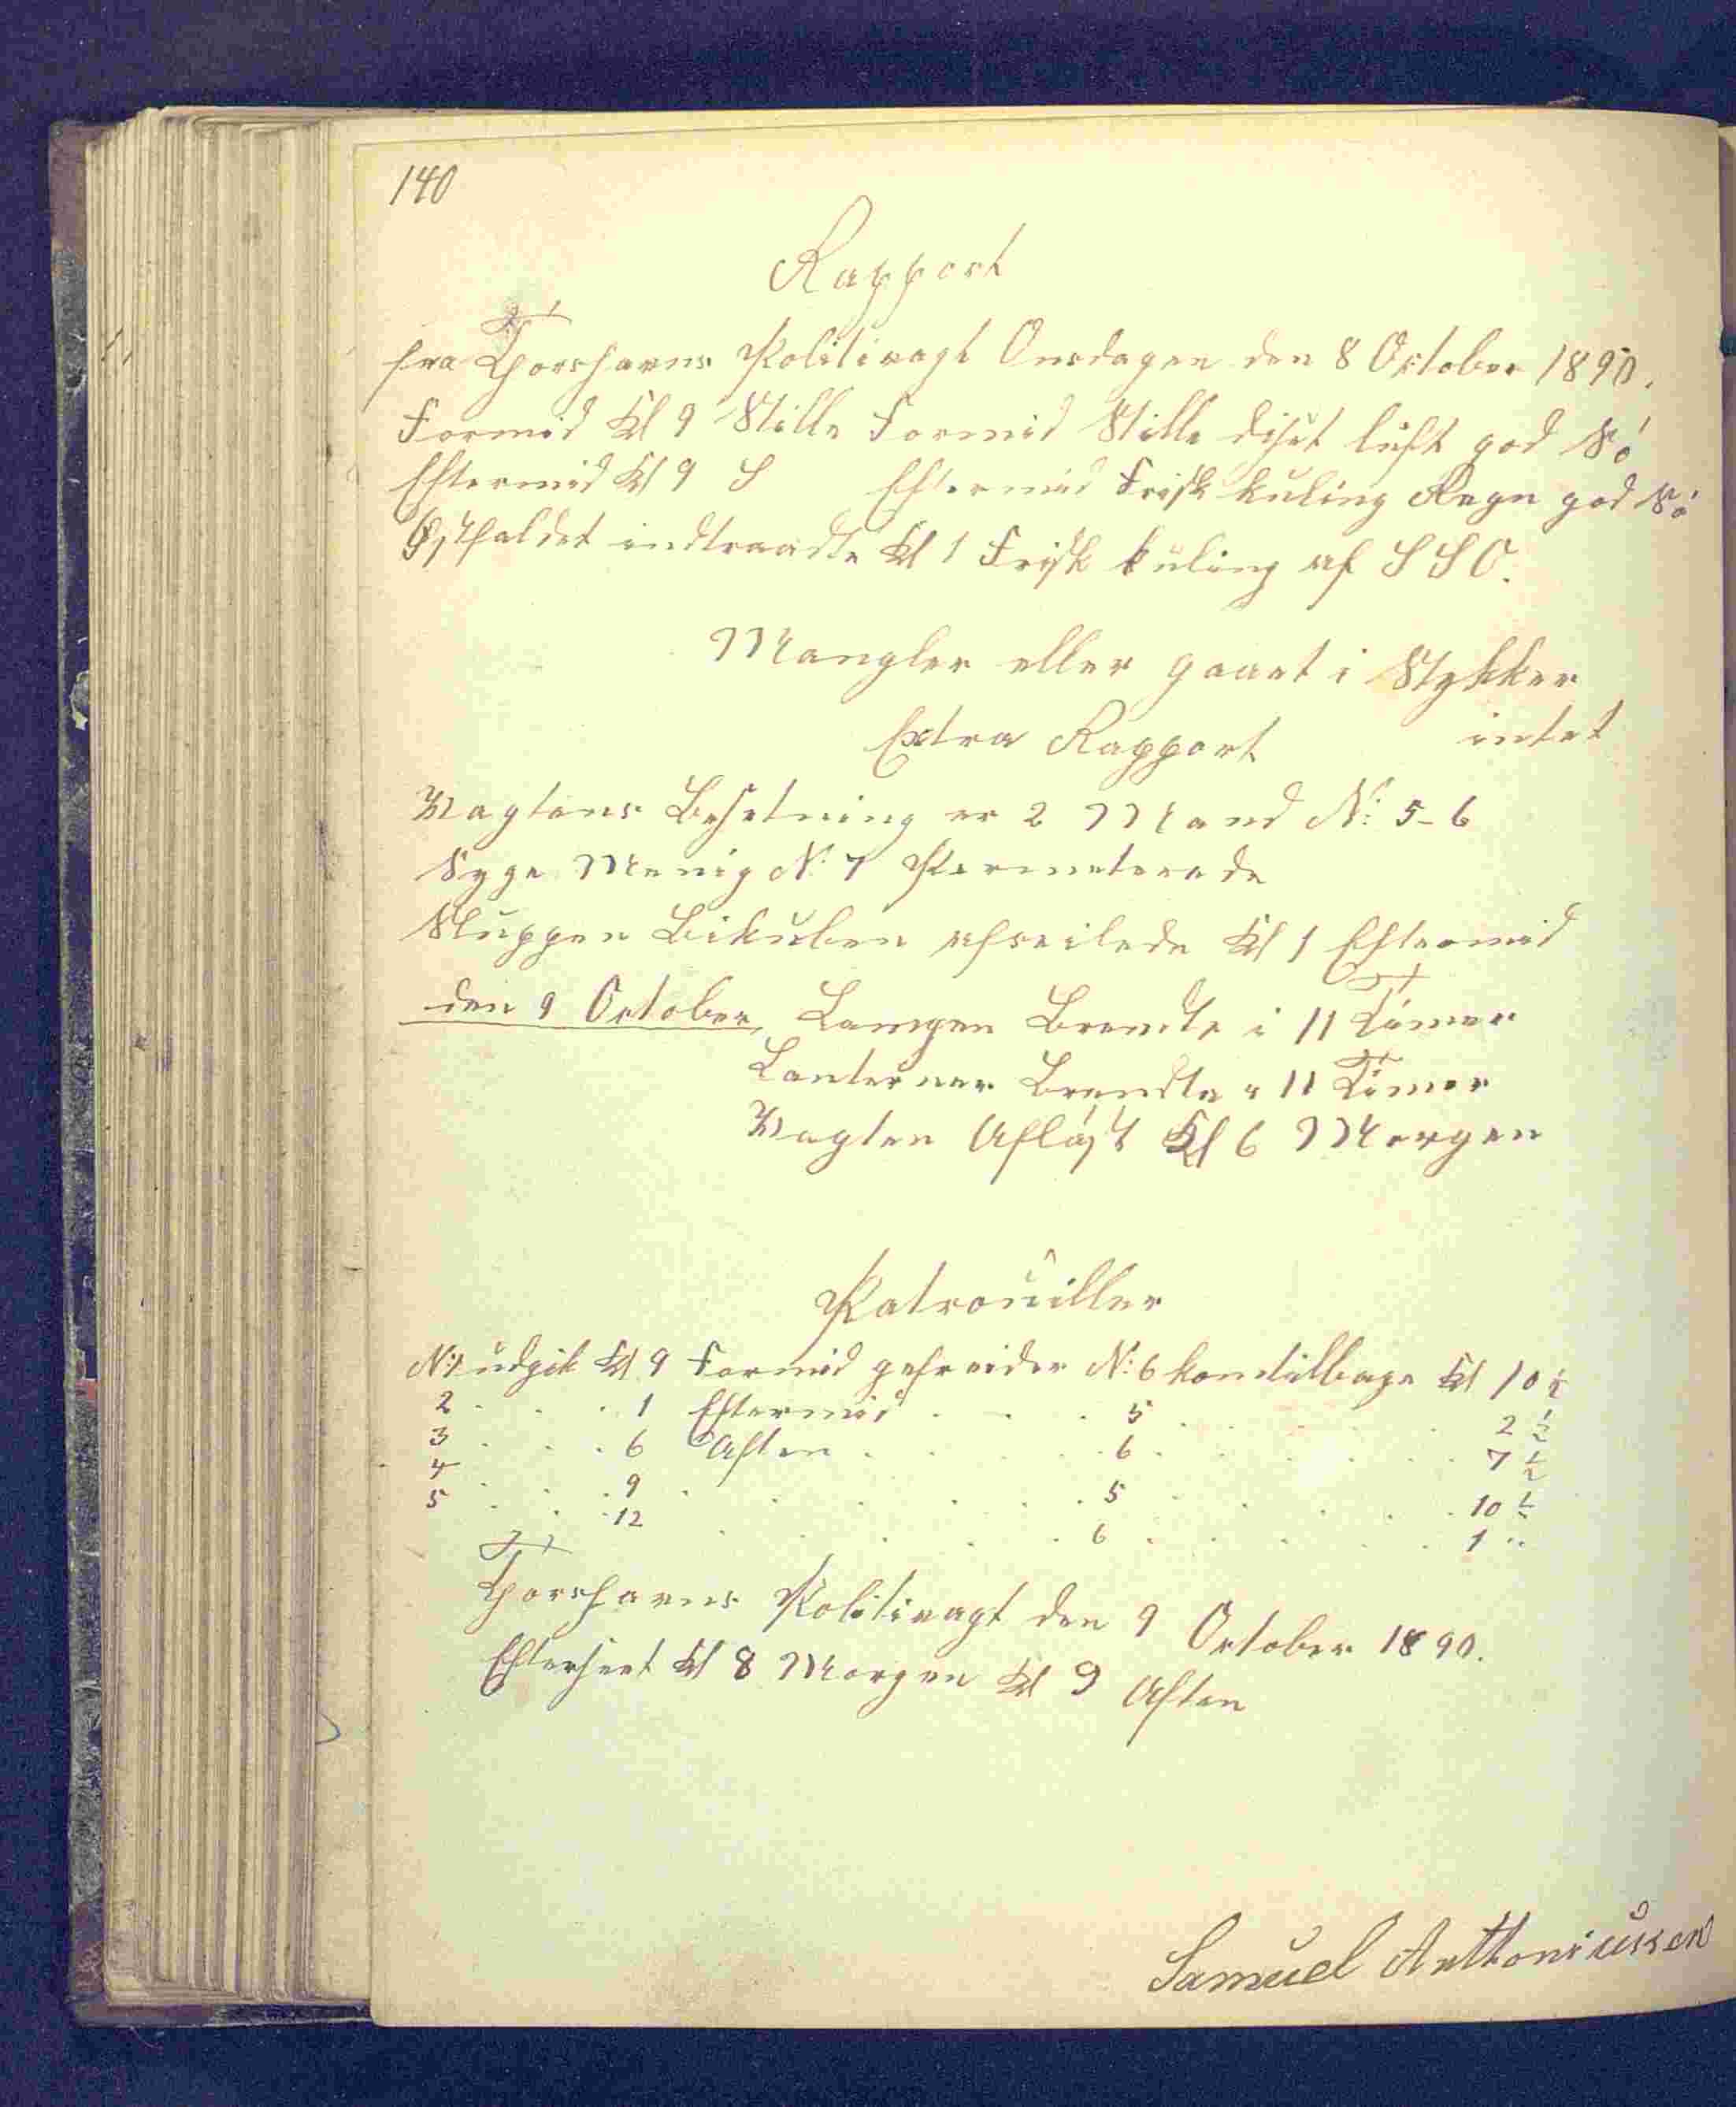 140
Rapport
fra Thorshavns Politivagt Onsdagen den 8 October 1890.
Formid Kl 9 Stille Formid Stille diset luft god Sö
Eftermid Kl 9 S Eftermid Frisk kuling Regn god Sö
Østfaldet indtraadte Kl 1 Frisk kuling af SSO.
Mangler eller gaaet i Stykker
intet
Extra Rapport
Vagtens Besetning er 2 Mand N: 5-6
Syge Menig N: 7 Permeterede
Sluppen Bikuben afseilede Kl 1 Eftermid
den 9 October, Lampen Brendte i 11 Timer
Lanterner Brendte " 11 Timer
Vagten Afløst Kl 6 Morgen
Patrouiller
N:1 udgik Kl 9 Formid gefreider N: 6 kom tilbage Kl 10 ½
2 . . . 1 Eftermid . . . 5 . . . . 2 ½
3 . . . 6 Aften . . . . 6 . . . . 7 ½
4 . . . 9 . . . . . . 5 . . . . 10 ½
5 . . . 12 . . . . . 6 . . . . 1 "
Thorshavns Politivagt den 9 October 1890.
Efterseet Kl 8 Morgen Kl 9 Aften
Samuel Anthoniussen